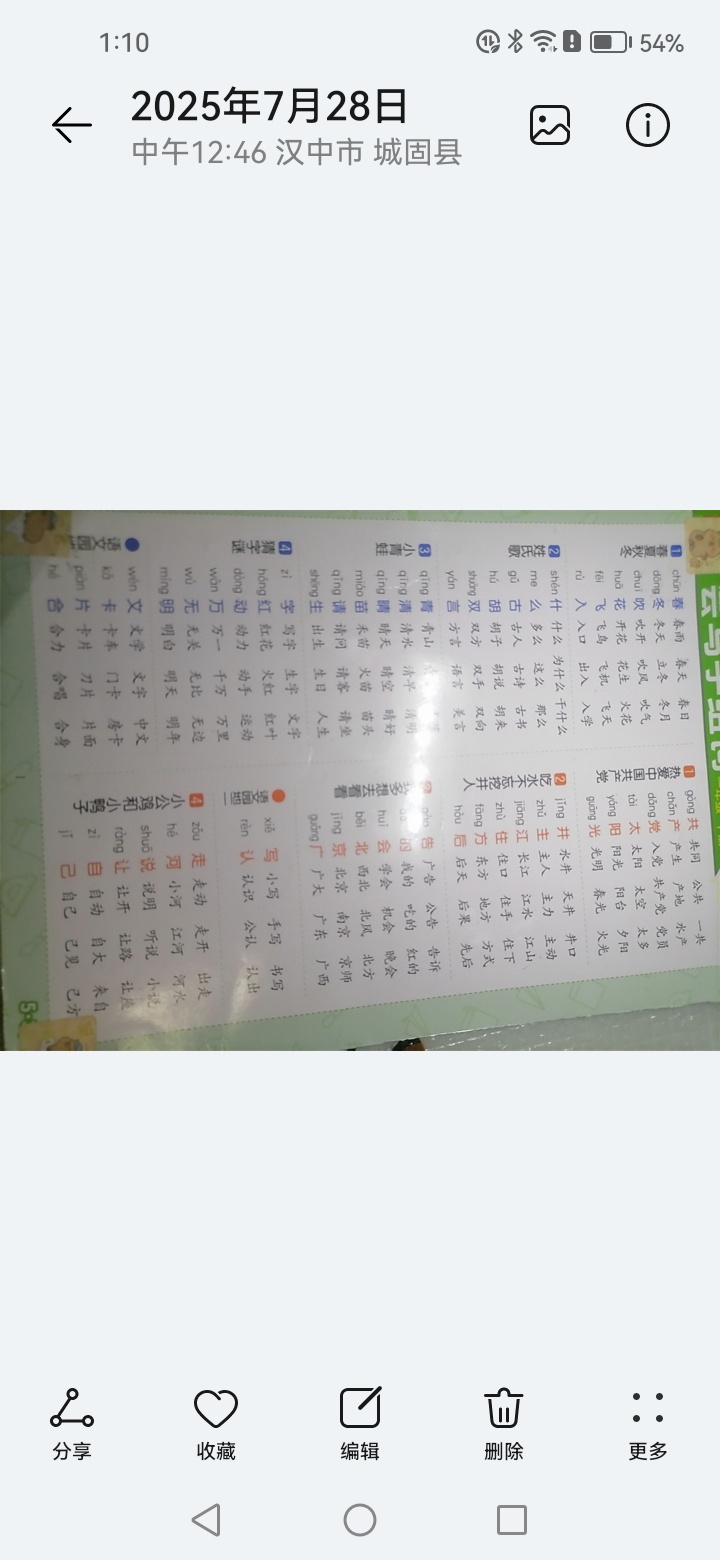 1:10
54%
2025年7月28日
中午12:46 汉中市 城固县
1 春夏秋冬
chūn 春 春雨 春天 春日
dōng 冬 冬天 立冬 冬月
chuī 吹 吹开 吹风 吹气
huā 花 开花 花生 火花
fēi 飞 飞鸟 飞机 飞天
rù 入 入口 出入 入学
2 姓氏歌
shén 什 什么 为什么 干什么
me 么 多么 这么 那么
gǔ 古 古人 古诗 古书
hú 胡 胡子 胡说 胡来
shuāng 双 双方 双手 双向
yán 言 方言 语言 美言
3 小青蛙
qīng 青 青山
qīng 清 清水 清早 清明
qíng 晴 晴天 晴空 晴好
miáo 苗 禾苗 火苗 苗头
qǐng 请 请问 请客 请坐
shēng 生 出生 生日 人生
4 猜字谜
zì 字 写字 生字 文字
hóng 红 红花 火红 红叶
dòng 动 动力 动手 运动
wàn 万 万一 千万 万里
wú 无 无关 无比 无边
míng 明 明白 明天 明年
语文园
wén 文 文学 文字 中文
kǎ 卡 卡车 门卡 房卡
piàn 片 卡片 刀片 片面
hé 合 合力 合唱 合身
1 热爱中国共产党
gòng 共 共同 公共 一共
chǎn 产 产生 产地 水产
dǎng 党 入党 共产党 党员
tài 太 太阳 太空 太多
yáng 阳 阳光 阳台 夕阳
guāng 光 光明 春光 火光
2 吃水不忘挖井人
jǐng 井 水井 天井 井口
zhǔ 主 主人 主力 主动
jiāng 江 长江 江水 江山
zhù 住 住口 住手 住下
fāng 方 东方 地方 方式
hòu 后 后天 后果 先后
多想去看看
gào 告 广告 公告 告诉
的 我的 吃的 红的
huì 会 学会 机会 晚会
běi 北 西北 北风 北方
jīng 京 北京 南京 京师
guǎng 广 广大 广东 广西
语文园地一
xiě 写 小写 手写 书写
rèn 认 认识 公认 认出
4 小公鸡和小鸭子
zǒu 走 走动 走开 出走
hé 河 小河 江河 河水
shuō 说 说明 听说 小说
ràng 让 让开 让路 让座
zì 自 自动 自大 来自
jǐ 己 自己 己见 己方
分享
收藏
编辑
删除
更多